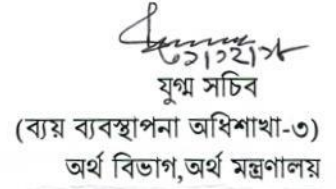 ৩১।১২।১৮
যুগ্ম সচিব
(ব্যয় ব্যবস্থাপনা অধিশাখা-৩)
অর্থ বিভাগ,অর্থ মন্ত্রণালয়